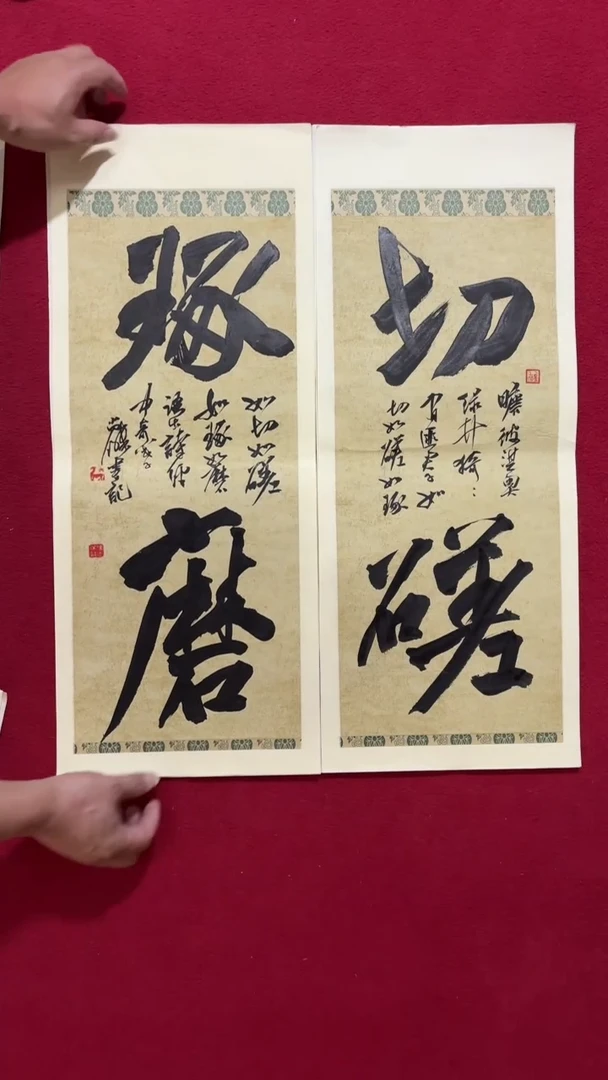 切磋
瞻彼淇奥
绿竹猗猗
有匪君子如
切如磋如琢
琢磨
如切如磋
如琢如磨
语出诗经